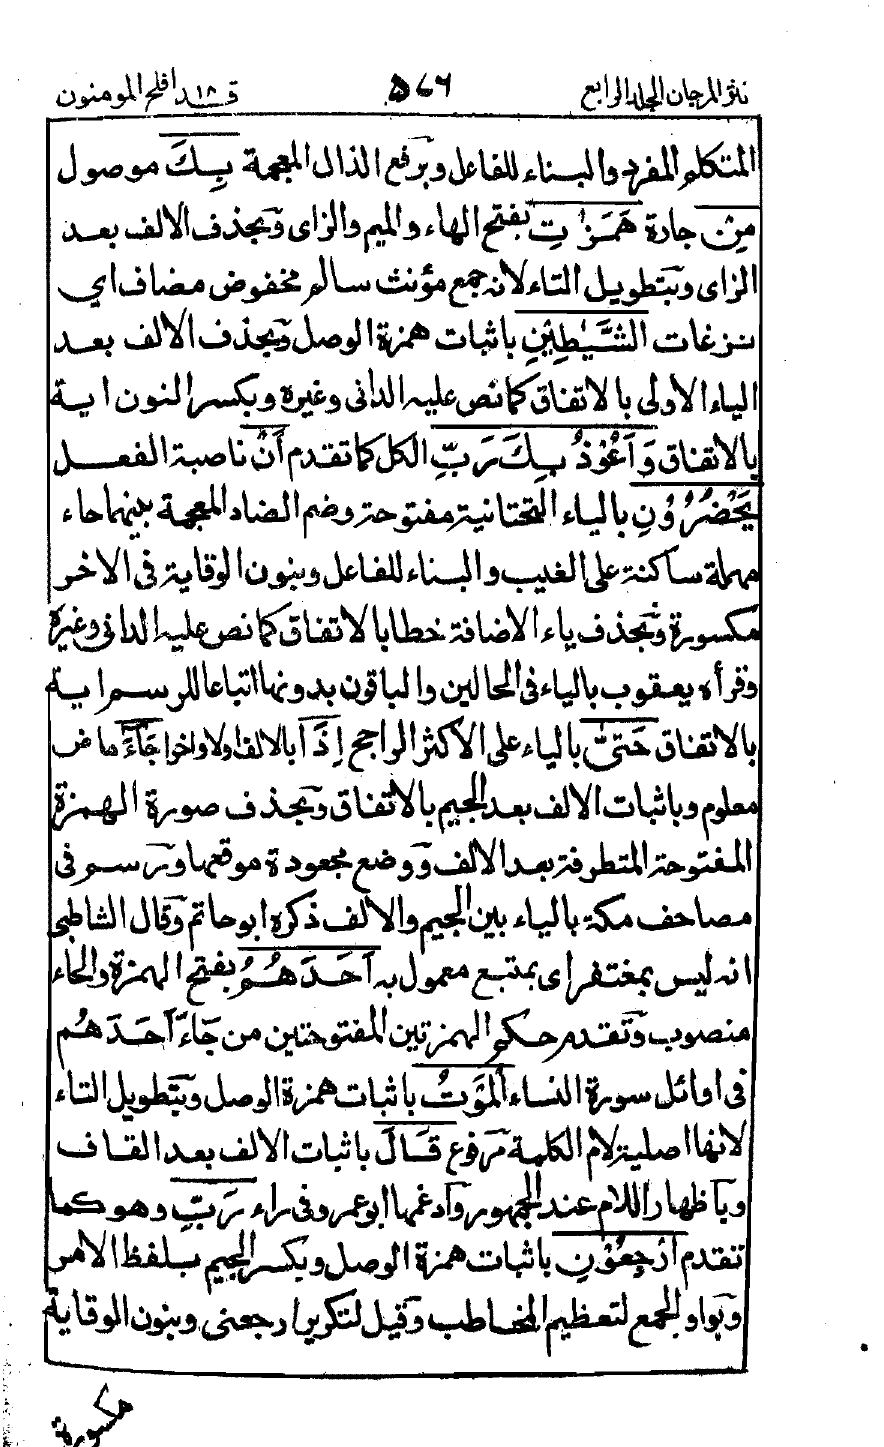 نثر المرجان المجلد الرابع ٥٧٦ قد افلح ١٨ المومنون
المتكلم المفرد والبناء للفاعل وبرفع الذال المعجمة بِكَ موصول
مِنْ جارة هَمَزٰتِ بفتح الهاء والميم والزاى وبحذف الالف بعد
الزاى وبتطويل التاء لانه جمع مؤنث سالم مخفوض مضاف اي
نزغات الشَّيٰطِيْنِ باثبات همزة الوصل وبحذف الالف بعد
الياء الاولى بالاتفاق كما نص عليه الدانى وغيره وبكسر النون اية
بالاتفاق وَاَعُوْذُ بِكَ رَبِّ الكل كما تقدم اَنْ ناصبة الفعل
يَحْضُرُوْنِ بالياء التحتانية مفتوحة وضم الضاد المعجمة بينهما حاء
مهملة ساكنة على الغيب والبناء للفاعل وبنون الوقاية فى الاخر
مكسورة وبحذف ياء الاضافة خطا بالاتفاق كما نص عليه الدانى وغيره
وقرأه يعقوب بالياء فى الحالين والباقون بدونها اتباعا للرسم اية
بالاتفاق حَتّٰى بالياء على الاكثر الراجح اِذَا بالالف اولا واخرا جَآءَ ماض
معلوم وباثبات الالف بعد الجيم بالاتفاق وبحذف صورة الهمزة
المفتوحة المتطرفة بعد الالف ووضع مجعودة موقعها ورسم فى
مصاحف مكة بالياء بين الجيم والالف ذكره ابو حاتم وقال الشاطبى
انه ليس بمغتفر اى بمتبع معمول به اَحَدَهُمُ بفتح الهمزة والحاء
منصوب وتقدم حكم الهمزتين المفتوحتين من جَآءَ اَحَدَهُم
فى اوائل سورة النساء الْمَوْتُ باثبات همزة الوصل وبتطويل التاء
لانها اصلية لام الكلمة مرفوع قَالَ باثبات الالف بعد القاف
وباظهار اللام عند الجمهور وادغمها ابو عمرو فى راء رَبِّ وهو كما
تقدم ارْجِعُوْنِ باثبات همزة الوصل وبكسر الجيم بلفظ الامر
وبواو الجمع لتعظيم المخاطب وقيل لتكرير ارجعنى وبنون الوقاية
مكسورة